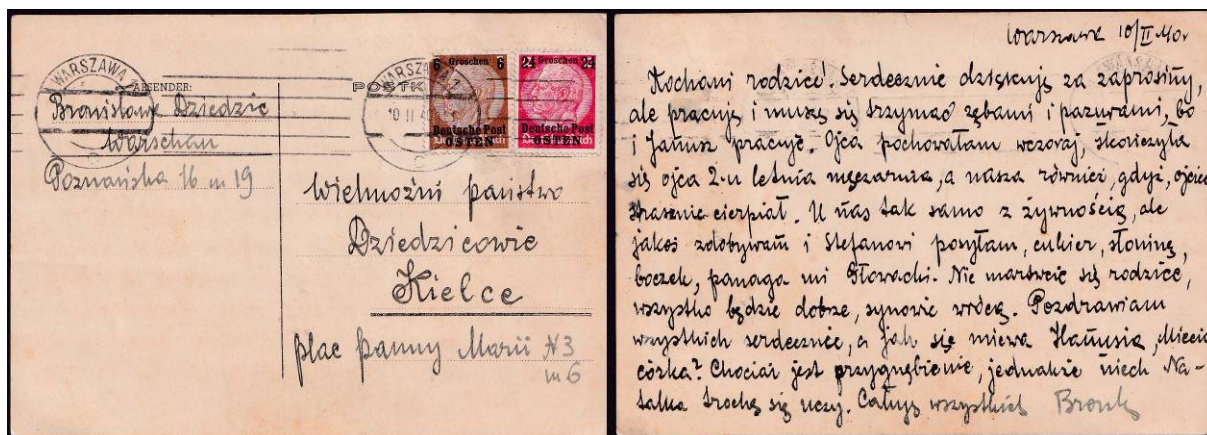 WARSZAWA 1
ABSENDER:
Bronisława Dziedzic
Warschau
Poznańska 16 m 19
POSTK
WARSZAWA 1
6 Groschen 6
Deutsche Post
OSTEN
24 Groschen 24
Deutsche Post
OSTEN
Wielmożni państwo
Dziedzicowie
Kielce
plac Panny Marii № 3
m 6
Warszawa 10/II 40r
Kochani rodzice. Serdecznie dziękuję za zaprosiny,
ale pracuję i muszę się trzymać zębami i pazurami, bo
i Janusz pracuje. Ojca pochowałam wczoraj, skończyła
się ojca 2-u letnia męczarnia, a nasza również, gdyż, ojciec
strasznie cierpiał. U nas tak samo z żywnością, ale
jakoś zdobywam i Stefanowi posyłam, cukier, słoninę,
boczek, pomaga mi Głowacki. Nie martwcie się rodzice,
wszystko będzie dobrze, synowie wrócą. Pozdrawiam
wszystkich serdecznie, a jak się miewa Hanusia, Miecia
córka? Chociaż jest przygnębienie, jednakże niech Na-
talka trochę się uczy. Całuję wszystkich